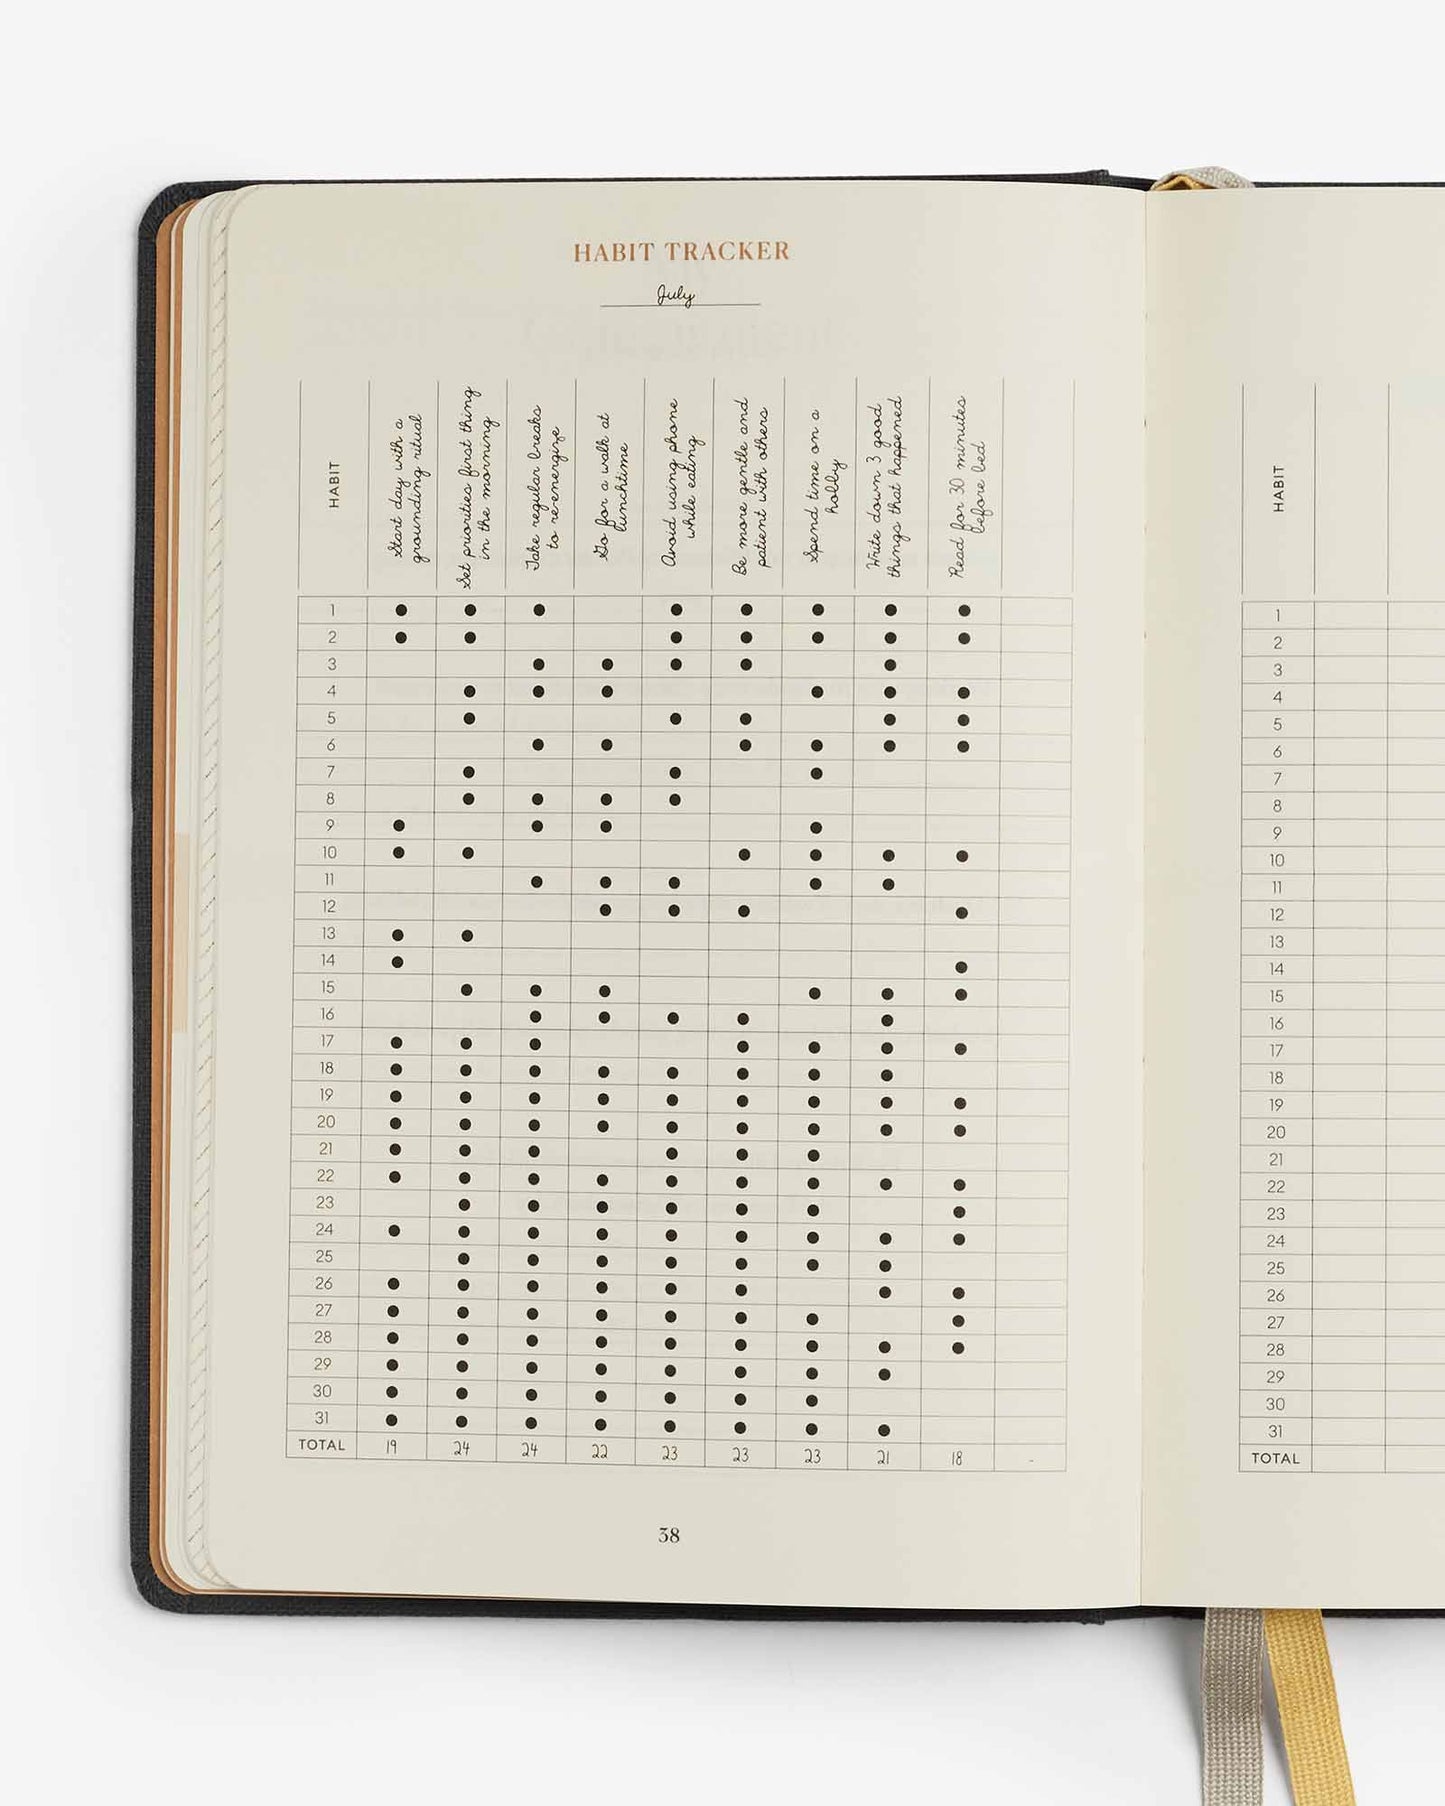 HABIT TRACKER
July
HABIT
Start day with a
grounding ritual
Set priorities first thing
in the morning
Take regular breaks
to re-energize
Go for a walk at
lunchtime
Avoid using phone
while eating
Be more gentle and
patient with others
Spend time on a
hobby
Write down 3 good
things that happened
Read for 30 minutes
before bed
1
2
3
4
5
6
7
8
9
10
11
12
13
14
15
16
17
18
19
20
21
22
23
24
25
26
27
28
29
30
31
TOTAL 19 24 24 22 23 23 23 21 18 -
38
HABIT
1
2
3
4
5
6
7
8
9
10
11
12
13
14
15
16
17
18
19
20
21
22
23
24
25
26
27
28
29
30
31
TOTAL